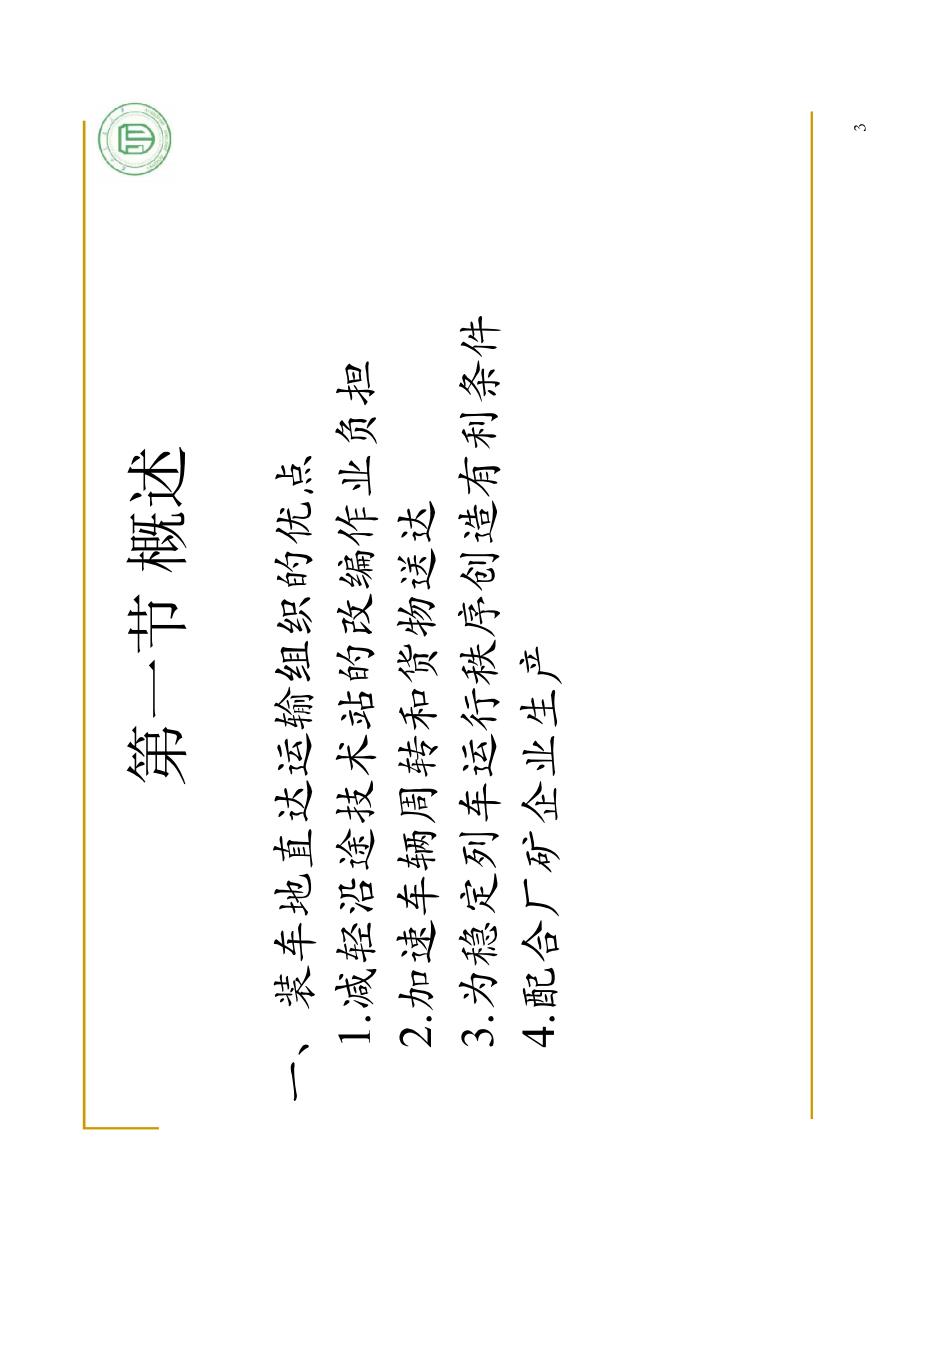 第一节 概述
一、装车地直达运输组织的优点
1.减轻沿途技术站的改编作业负担
2.加速车辆周转和货物送达
3.为稳定列车运行秩序创造有利条件
4.配合厂矿企业生产
3